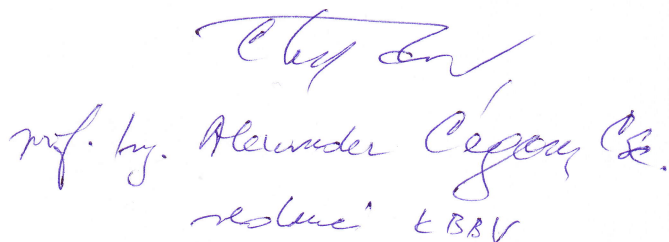 prof. Ing. Alexander Čegan, CSc.
vedoucí KBBV